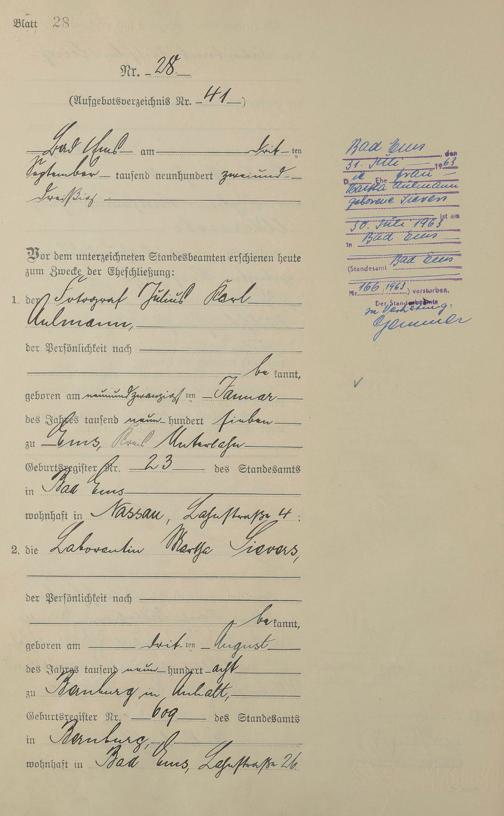 Blatt 28
Nr. 28
(Aufgebotsverzeichnis Nr. 41)
Bad Ems am dritten
September tausend neunhundert zweiund-
dreißig
Vor dem unterzeichneten Standesbeamten erschienen heute
zum Zwecke der Eheschließung:
1. der Fotograf Julius Karl
Aulmann,
der Persönlichkeit nach
bekannt,
geboren am neunundzwanzigsten Januar
des Jahres tausend neunhundert sieben
zu Ems, Kreis Unterlahn
Geburtsregister Nr. 23 des Standesamts
in Bad Ems
wohnhaft in Nassau, Lahnstraße 4.
2. die Laborantin Martha Sievers,
der Persönlichkeit nach
bekannt,
geboren am dritten August
des Jahres tausend neunhundert acht
zu Bernburg in Anhalt,
Geburtsregister Nr. 609 des Standesamts
in Bernburg,
wohnhaft in Bad Ems, Lahnstraße 26
Bad Ems den
31. Juli 1963
Die Ehefrau
Martha Aulmann
geborene Sievers
ist am
30. Juli 1963
in Bad Ems
(Standesamt Bad Ems
Nr. 166/1963) verstorben.
Der Standesbeamte
In Vertretung: